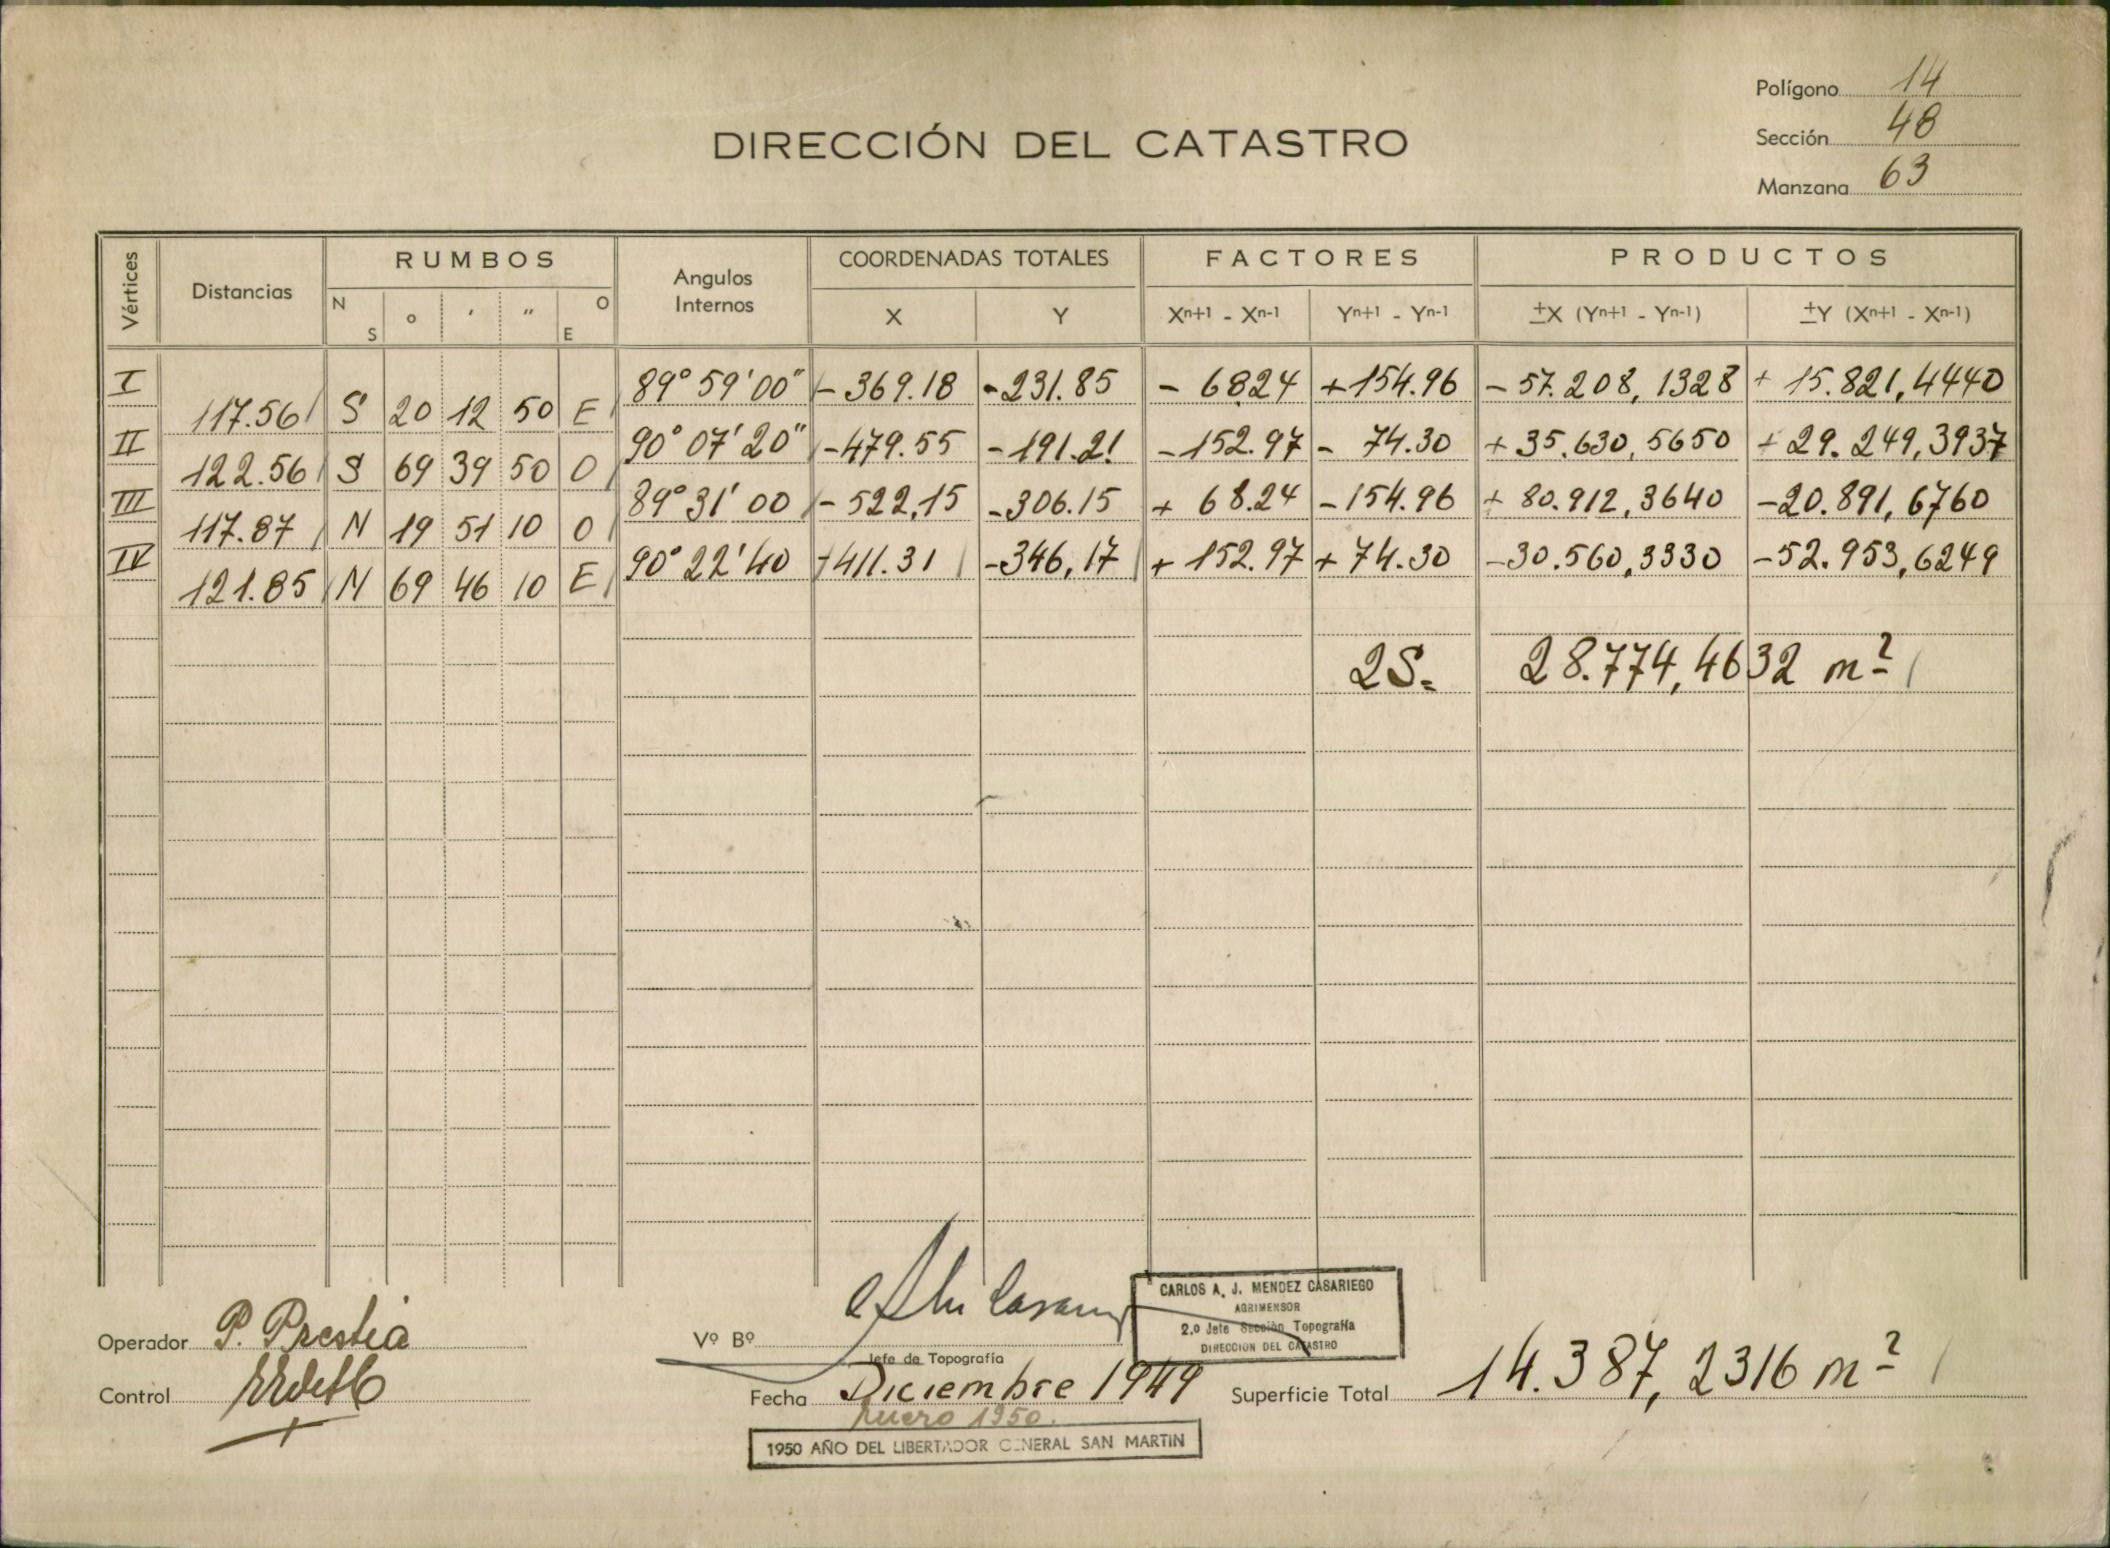 Polígono 14
DIRECCIÓN DEL CATASTRO
Sección 48
Manzana 63
Vértices Distancias RUMBOS Angulos Internos COORDENADAS TOTALES FACTORES PRODUCTOS
N S ° ' " O E X Y Xn+1 - Xn-1 Yn+1 - Yn-1 ±X (Yn+1 - Yn-1) ±Y (Xn+1 - Xn-1)
I 89° 59' 00" - 369.18 - 231.85 - 68.24 + 154.96 - 57.208,1328 + 15.821,4440
117.56 S 20 12 50 E
II 90° 07' 20" - 479.55 - 191.21 - 152.97 - 74.30 + 35.630,5650 + 29.249,3937
122.56 S 69 39 50 O
III 89° 31' 00 - 522,15 - 306.15 + 68.24 - 154.96 + 80.912,3640 - 20.891,6760
117.87 N 19 51 10 O
IV 90° 22' 40 - 411.31 - 346,17 + 152.97 + 74.30 - 30.560,3330 - 52.953,6249
121.85 N 69 46 10 E
2S= 28.774,4632 m²
CARLOS A. J. MENDEZ CASARIEGO
AGRIMENSOR
2.º Jefe Sección Topografía
DIRECCION DEL CATASTRO
Operador P. Prestia
Vº Bº
Jefe de Topografía
Control
Fecha Diciembre 1949
Superficie Total 14.387,2316 m²
Enero 1950.
1950 AÑO DEL LIBERTADOR GENERAL SAN MARTIN